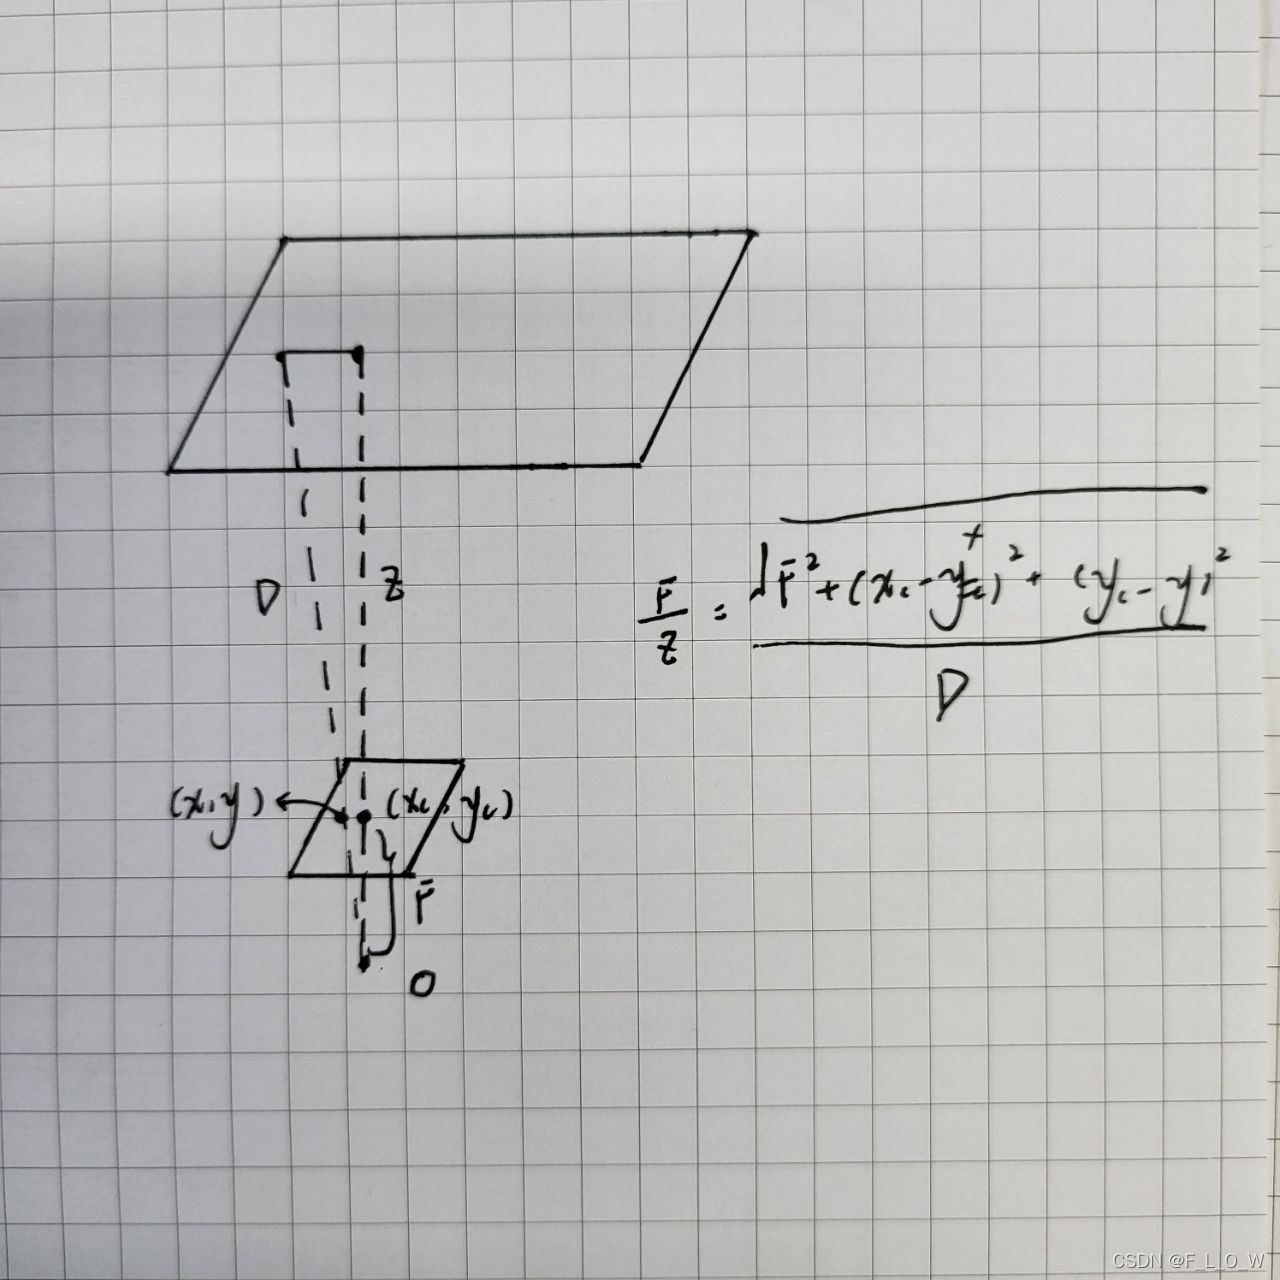 D
Z
F/Z = √(F² + (x_c - x)² + (y_c - y)²) / D
(x, y)
(x_c, y_c)
F
O
CSDN @F_L_O_W